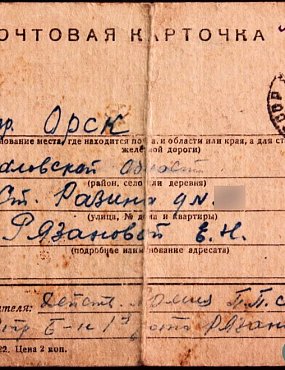 ПОЧТОВАЯ КАРТОЧКА
гор. Орск
нование места, где находится почта, и области или края, а для ст
железной дороги)
каловской област
(район, село или деревня)
Ст. Разина ул.
(улица, № дома и квартиры)
Рязановой Е. Н.
(подробное наименование адресата)
ителя: Действ.
Рязан
22. Цена 2 коп.